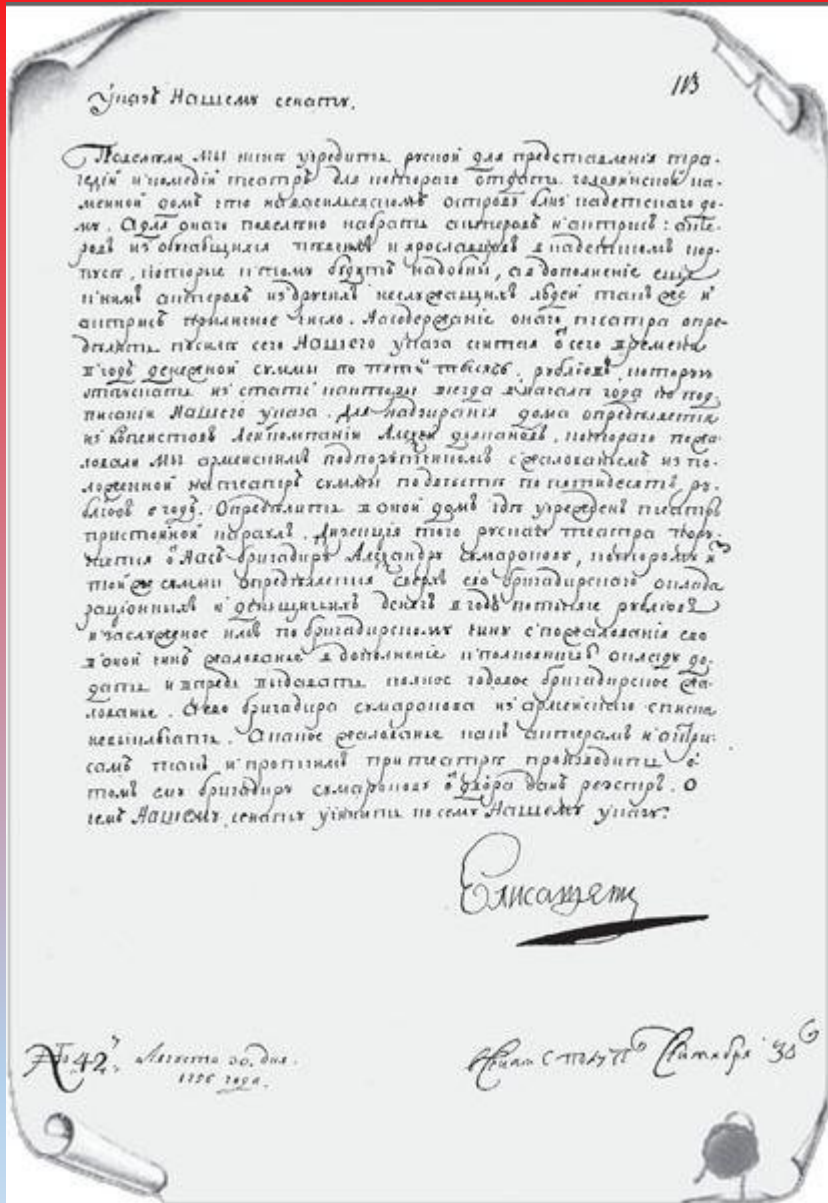 113
Указъ Нашему сенату.
Повелели мы ныне учредить руской для представленія тра-
гедіи и комедіи театръ для котораго отдать головкинской ка-
менной домъ что на васильевскомъ острову близ кадетскаго до-
му. А для онаго повелено набрать актеровъ и актрисъ: акте-
ровъ из обучающихся певчихъ и ярославцовъ в кадетскомъ кор-
пусе, которые к тому будутъ надобны, а в дополненіе еще
к нимъ актеровъ из другихъ неслужащихъ людей такъ же и
актрисъ приличное число. На содержаніе онаго театра опре-
делить по силе сего Нашего указа считая отъ сего времени
в годъ денежной суммы по 5000 рублевъ, которую
отпускать из статс канторы всегда в начале года по под-
писаніи Нашего указа. Для надзиранія дома определяется
из копеистовъ лейпкомпаніи Алексей дьяконовъ, котораго пожа-
ловали мы армейскимъ подпорутчикомъ с жалованьемъ из по-
ложенной на театръ суммы по двести по пятидесятъ ру-
блевъ в годъ. Определить в оной домъ где учрежденъ театръ
пристойной караулъ. Дирекція того рускаго театра пору-
чается отъ Насъ бригадиру Александру сумарокову, которому из
той же суммы определяется сверхъ его бригадирскаго оклада
раціонныхъ и деньщичьихъ денегъ в годъ по тысяче рублевъ
и заслуженое имъ по бригадирскому чину с пожалованія его
в оной чинъ жалованье в дополненіе к полковничью окладу до-
дать и впредь выдавать полное годовое бригадирское жа-
лованье. А ево бригадира сумарокова из армейскаго списка
невыключать. А какое жалованье какъ актерамъ и актри-
самъ такъ и протчимъ при театре производить о
томъ ему бригадиру сумарокову отъ двора данъ реэстръ. О
чемъ Нашему сенату учинить по сему Нашему указу.
Елисаветъ
№ 42 Августа 30. дня.
1756 года.
Сентября 30